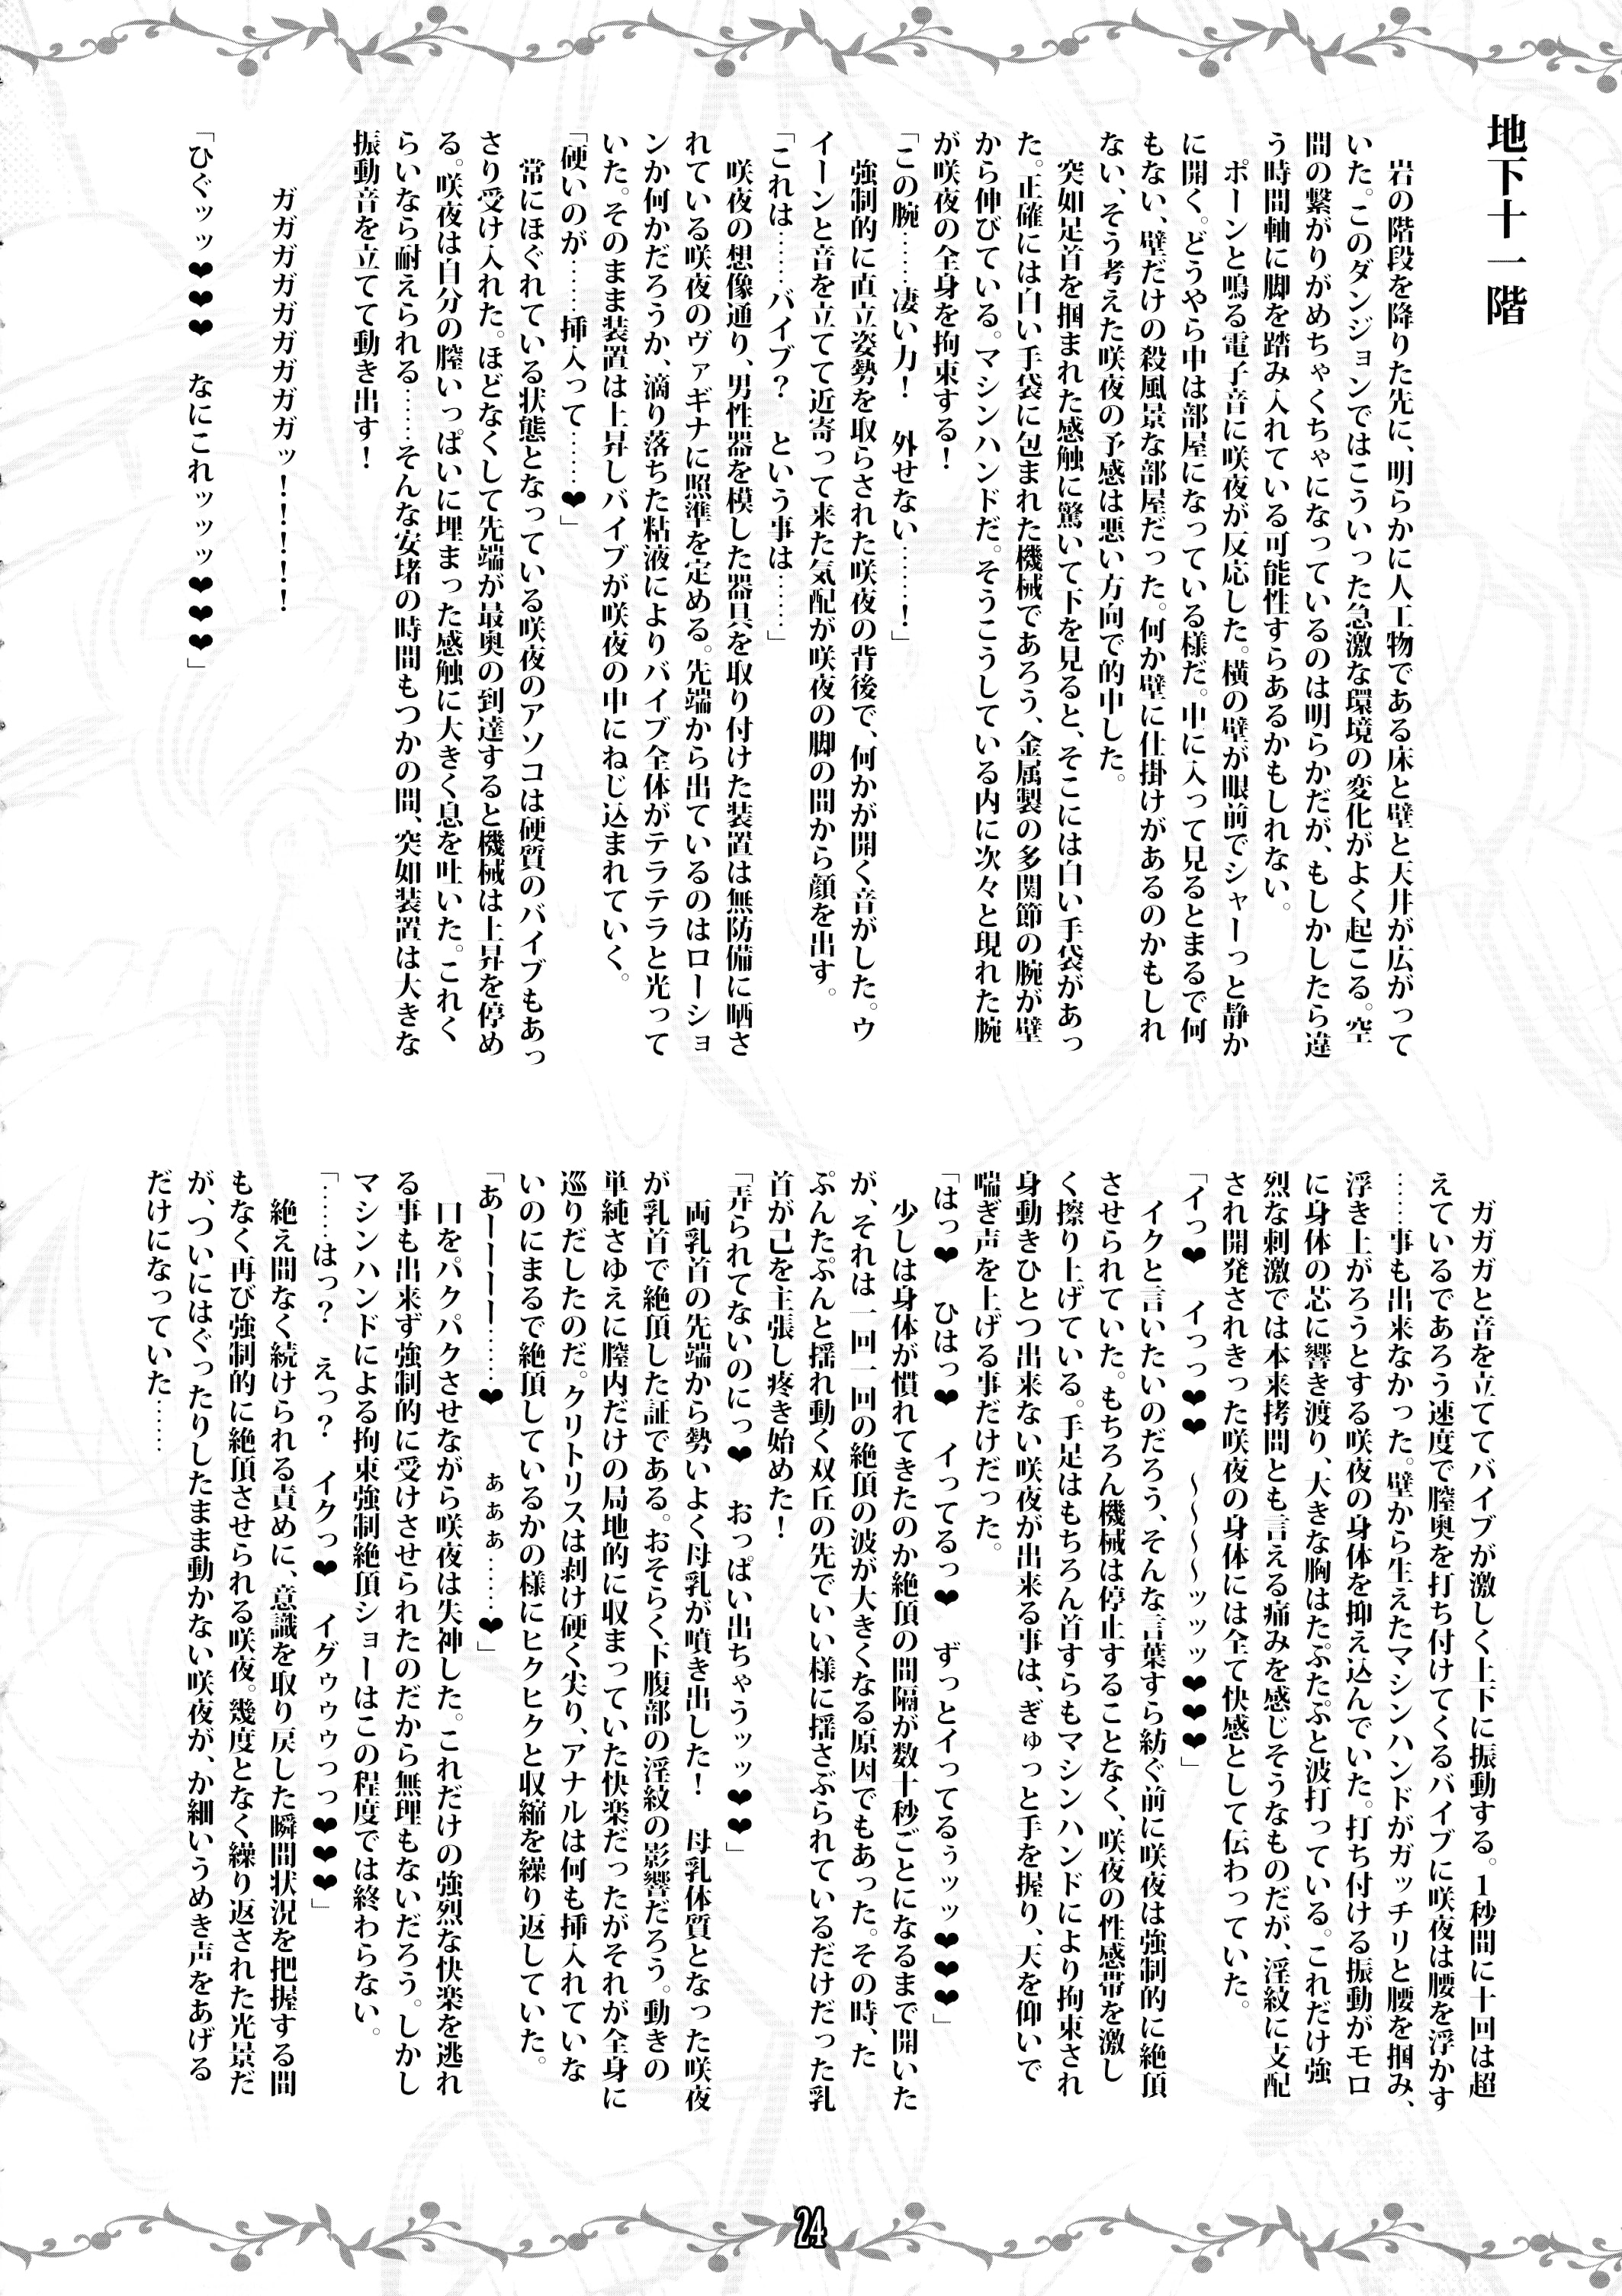 地下十一階
岩の階段を降りた先に、明らかに人工物である床と壁と天井が広がって
いた。このダンジョンではこういった急激な環境の変化がよく起こる。空
間の繋がりがめちゃくちゃになっているのは明らかだが、もしかしたら違
う時間軸に脚を踏み入れている可能性すらあるかもしれない。
ポーンと鳴る電子音に咲夜が反応した。横の壁が眼前でシャーっと静か
に開く。どうやら中は部屋になっている様だ。中に入って見るとまるで何
もない、壁だけの殺風景な部屋だった。何か壁に仕掛けがあるのかもしれ
ない、そう考えた咲夜の予感は悪い方向で的中した。
突如足首を掴まれた感触に驚いて下を見ると、そこには白い手袋があっ
た。正確には白い手袋に包まれた機械であろう、金属製の多関節の腕が壁
から伸びている。マシンハンドだ。そうこうしている内に次々と現れた腕
が咲夜の全身を拘束する！
「この腕……凄い力！　外せない……！」
強制的に直立姿勢を取らされた咲夜の背後で、何かが開く音がした。ウ
イーンと音を立てて近寄って来た気配が咲夜の脚の間から顔を出す。
「これは……バイブ？　という事は……」
咲夜の想像通り、男性器を模した器具を取り付けた装置は無防備に晒さ
れている咲夜のヴァギナに照準を定める。先端から出ているのはローショ
ンか何かだろうか、滴り落ちた粘液によりバイブ全体がテラテラと光って
いた。そのまま装置は上昇しバイブが咲夜の中にねじ込まれていく。
「硬いのが……挿入って……❤」
常にほぐれている状態となっている咲夜のアソコは硬質のバイブもあっ
さり受け入れた。ほどなくして先端が最奥の到達すると機械は上昇を停め
る。咲夜は自分の膣いっぱいに埋まった感触に大きく息を吐いた。これく
らいなら耐えられる……そんな安堵の時間もつかの間、突如装置は大きな
振動音を立てて動き出す！
ガガガガガガガガガッ！！！！！
「ひぐッッ❤❤❤　なにこれッッッ❤❤❤」
ガガガと音を立ててバイブが激しく上下に振動する。1秒間に十回は超
えているであろう速度で膣奥を打ち付けてくるバイブに咲夜は腰を浮かす
……事も出来なかった。壁から生えたマシンハンドがガッチリと腰を掴み、
浮き上がろうとする咲夜の身体を抑え込んでいた。打ち付ける振動がモロ
に身体の芯に響き渡り、大きな胸はたぷたぷと波打っている。これだけ強
烈な刺激では本来拷問とも言える痛みを感じそうなものだが、淫紋に支配
され開発されきった咲夜の身体には全て快感として伝わっていた。
「イっ❤　イっっ❤❤　～～～～ッッッ❤❤❤」
イクと言いたいのだろう、そんな言葉すら紡ぐ前に咲夜は強制的に絶頂
させられていた。もちろん機械は停止することなく、咲夜の性感帯を激し
く擦り上げている。手足はもちろん首すらもマシンハンドにより拘束され
身動きひとつ出来ない咲夜が出来る事は、ぎゅっと手を握り、天を仰いで
喘ぎ声を上げる事だけだった。
「はっ❤　ひはっ❤　イってるっ❤　ずっとイってるぅッッ❤❤❤」
少しは身体が慣れてきたのか絶頂の間隔が数十秒ごとになるまで開いた
が、それは一回一回の絶頂の波が大きくなる原因でもあった。その時、た
ぷんたぷんと揺れ動く双丘の先でいい様に揺さぶられているだけだった乳
首が己を主張し疼き始めた！
「弄られてないのにっ❤　おっぱい出ちゃうッッ❤❤」
両乳首の先端から勢いよく母乳が噴き出した！　母乳体質となった咲夜
が乳首で絶頂した証である。おそらく下腹部の淫紋の影響だろう。動きの
単純さゆえに膣内だけの局地的に収まっていた快楽だったがそれが全身に
巡りだしたのだ。クリトリスは剥け硬く尖り、アナルは何も挿入れていな
いのにまるで絶頂しているかの様にヒクヒクと収縮を繰り返していた。
「あーーーーー……❤　　ぁぁぁ……❤」
口をパクパクさせながら咲夜は失神した。これだけの強烈な快楽を逃れ
る事も出来ず強制的に受けさせられたのだから無理もないだろう。しかし
マシンハンドによる拘束強制絶頂ショーはこの程度では終わらない。
「……はっ？　えっ？　イクっ❤　イグゥゥゥっっ❤❤❤」
絶え間なく続けられる責めに、意識を取り戻した瞬間状況を把握する間
もなく再び強制的に絶頂させせられる咲夜。幾度となく繰り返された光景だ
が、ついにはぐったりしたまま動かない咲夜が、か細いうめき声をあげる
だけになっていた……
24